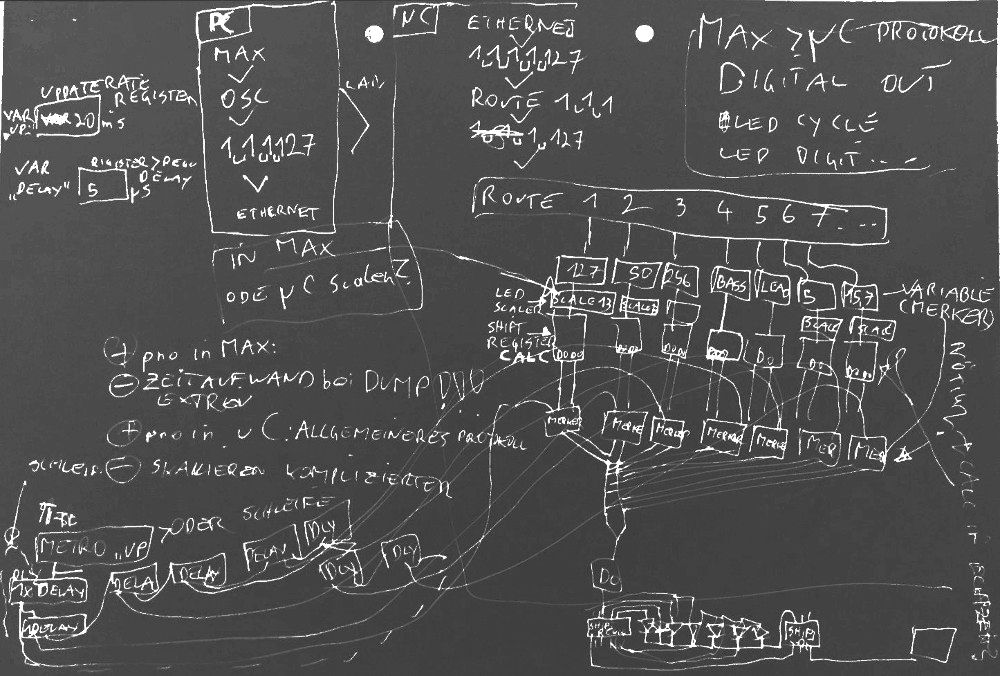 PC
MAX
OSC
1,1,1,127
ETHERNET
LAN
UPDATERATE
REGISTER
VAR
"UP"
20 ms
VAR
"DELAY"
REGISTER > REGI
DELAY
5 µS
µC
ETHERNET
1,1,1,1,127
ROUTE 1,1,1
1,127
MAX > µC PROTOKOLL
DIGITAL OUT
LED CYCLE
LED DIGIT....
ROUTE 1 2 3 4 5 6 7...
IN MAX
ODE µC Scalen?
127
50
256
BASS
LEAD
5
15,7
VARIABLE
(MERKER)
LED
SCALER
SCALE 13
SCALE
SCALE
SCALE
SHIFT
REGISTER
CALC
MERKER
MERKE
MERKER
MERKER
MERKE
MER
MER
+ pro in MAX:
- ZEITAUFWAND bei DUMP
EXTREM
+ pro in µC: ALLGEMEINERES PROTOKOLL
- SKALIEREN KOMPLIZIERTER
METRO "UP"
> ODER SCHLEIFE
1x DELAY
DELAY
DELA
DELAY
DELAY
DLY
DLY
DLY
DO
SHIFT
SHIFT